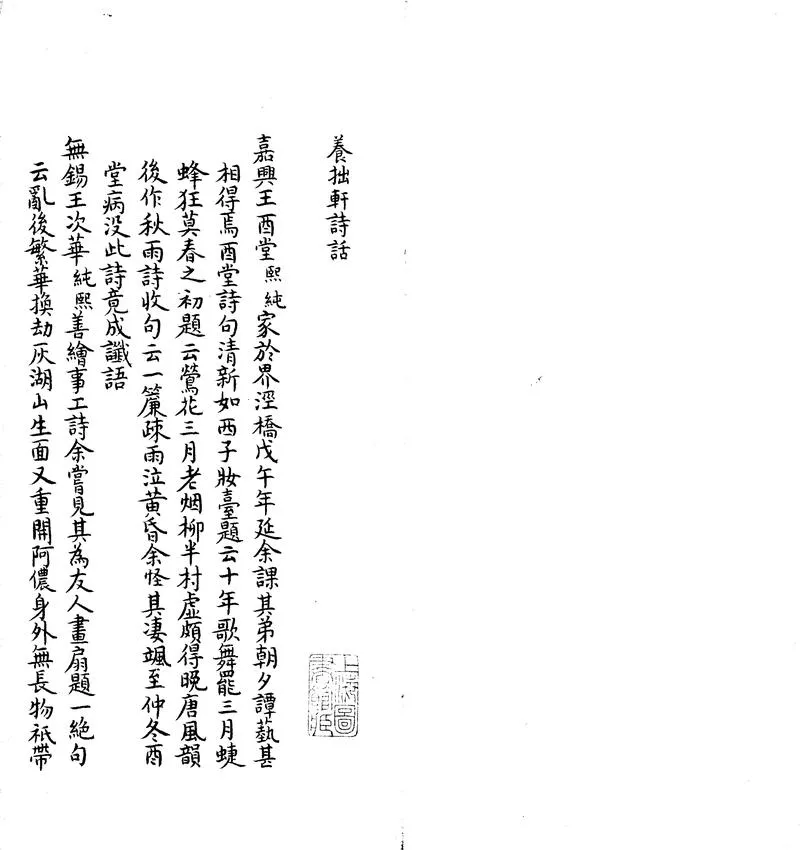 養拙軒詩話
嘉興王酉堂熙純家於界涇橋戊午年延余課其弟朝夕譚藝甚
相得焉酉堂詩句清新如西子妝臺題云十年歌舞罷三月蜨
蜂狂莫春之初題云鶯花三月老烟柳半村虛頗得晚唐風韻
後作秋雨詩收句云一簾疎雨泣黃昏余怪其凄颯至仲冬酉
堂病没此詩竟成讖語
無錫王次華純熙善繪事工詩余嘗見其為友人畫扇題一絶句
云亂後繁華換劫灰湖山生面又重開阿儂身外無長物祇帶
上海圖書館藏